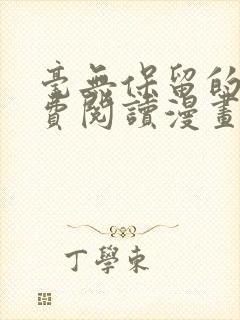 毫無保留的
費閱讀漫畫
丁學東